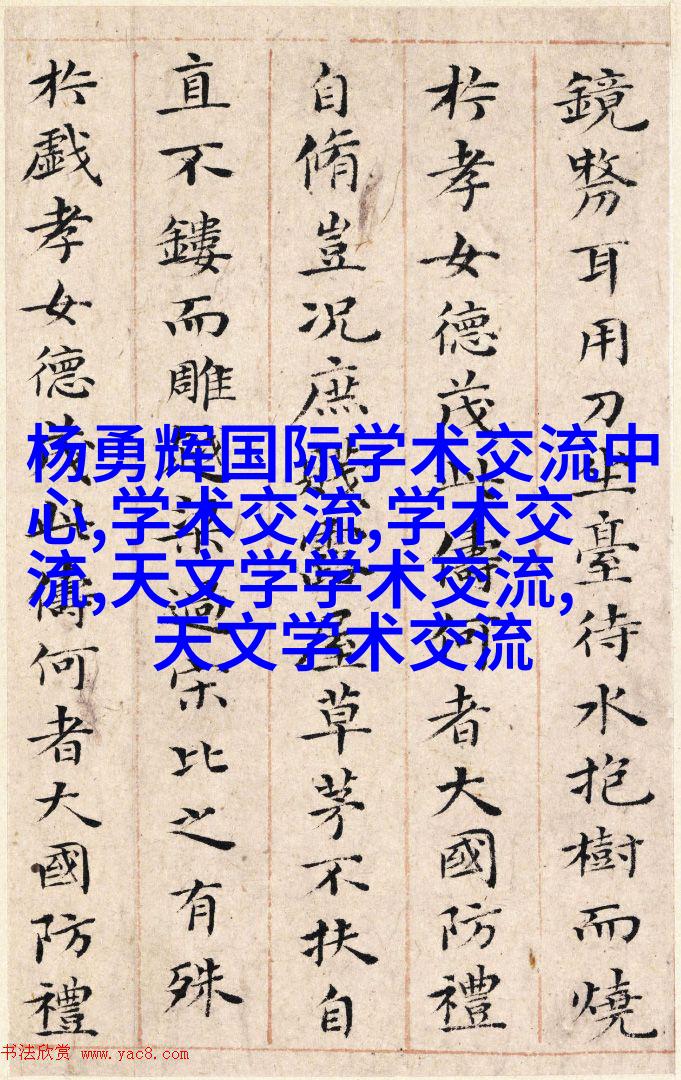 鏡剺耳用刀坐臺待水抱樹而燒
扵孝女德茂此儔何者大國防禮
自脩豈况庶賤露屋草茅不扶自
直不鏤而雕越梁過宋比之有殊
扵戲孝女德茂此儔何者大國防禮
杨勇辉国际学术交流中
心,学术交流,学术交
流,天文学学术交流,
天文学术交流
书法欣赏 www.yac8.com